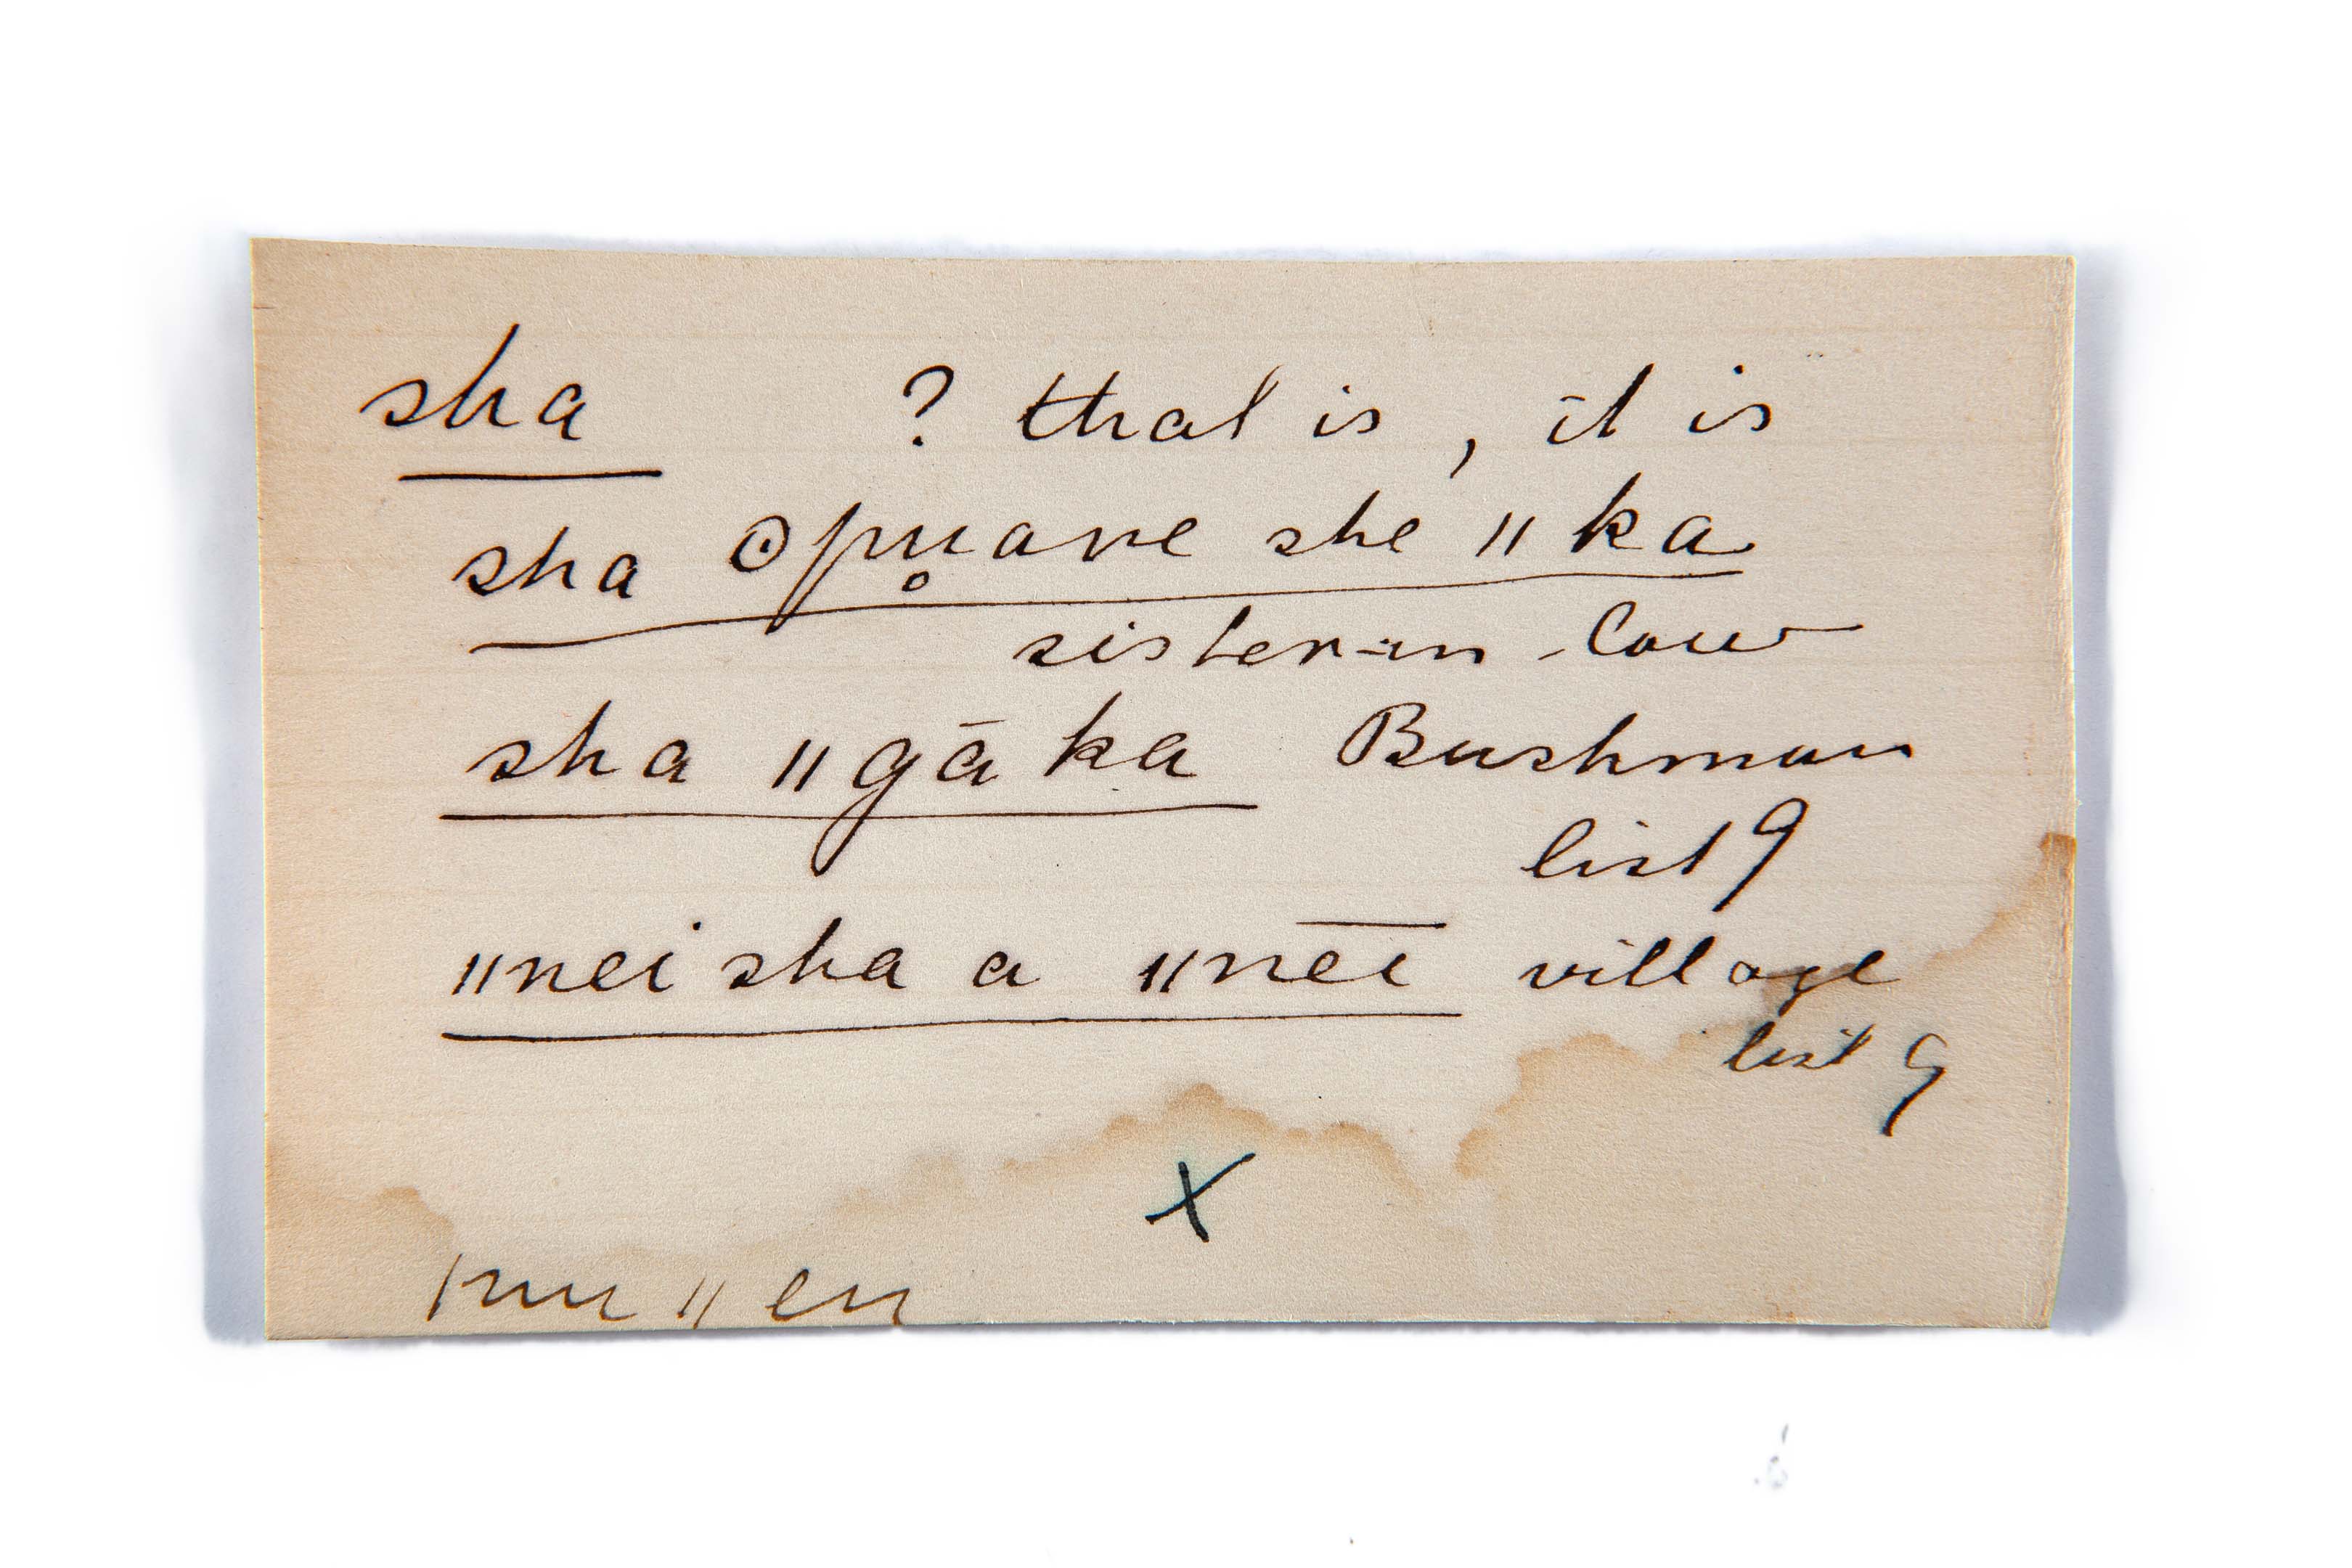 sha ? that is, it is
sha ʘpu̥ave she ǁka
sister-in-law
sha ǁgāka Bushman
list 9
ǁnei sha a ǁnēī village
list 9
X
ǀnu ǁen